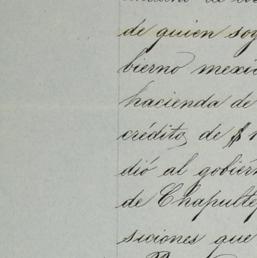 de quien soy
bierno mexic
hacienda de
crédito, de $
dió al gobiern
de Chapultep
siciones que